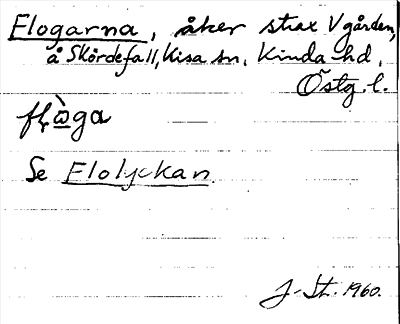 Flogarna, åker strax V gården,
å Skördefall, Kisa sn, Kinda hd,
Östg. l.
flⱥ̀ga
Se Flolyckan
J. St. 1960.